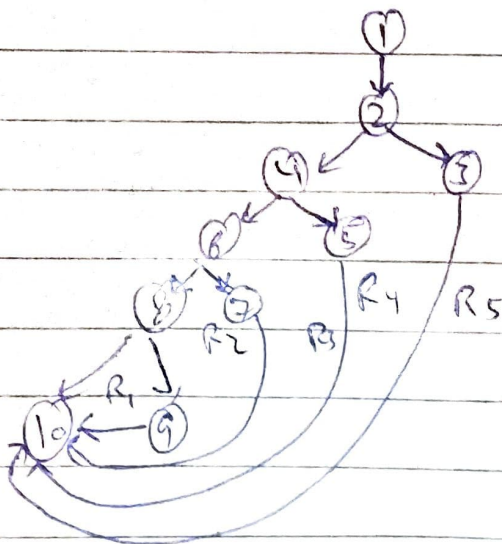 1
2
4 3
6 5
8 7 R4 R5
R2 R3
R1
10 9